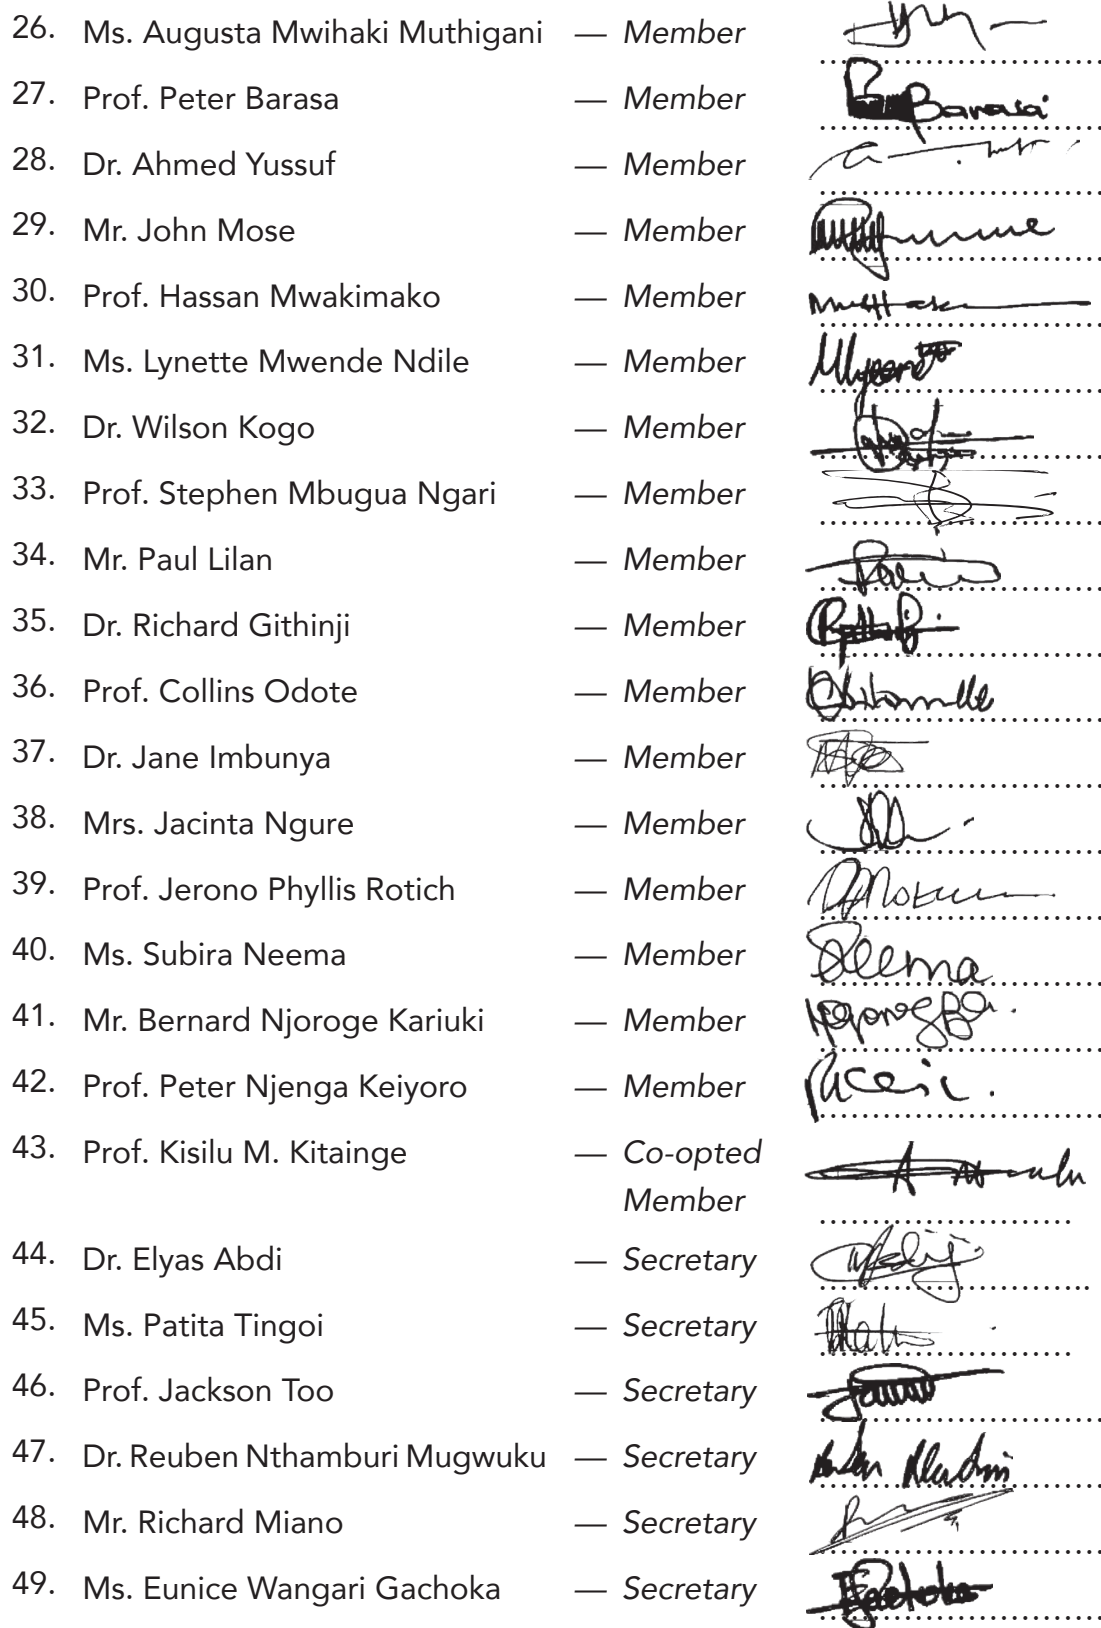 26. Ms. Augusta Mwihaki Muthigani — Member
27. Prof. Peter Barasa — Member Barasa
28. Dr. Ahmed Yussuf — Member
29. Mr. John Mose — Member
30. Prof. Hassan Mwakimako — Member
31. Ms. Lynette Mwende Ndile — Member
32. Dr. Wilson Kogo — Member
33. Prof. Stephen Mbugua Ngari — Member
34. Mr. Paul Lilan — Member
35. Dr. Richard Githinji — Member
36. Prof. Collins Odote — Member
37. Dr. Jane Imbunya — Member
38. Mrs. Jacinta Ngure — Member
39. Prof. Jerono Phyllis Rotich — Member
40. Ms. Subira Neema — Member
41. Mr. Bernard Njoroge Kariuki — Member
42. Prof. Peter Njenga Keiyoro — Member
43. Prof. Kisilu M. Kitainge — Co-opted
Member
44. Dr. Elyas Abdi — Secretary
45. Ms. Patita Tingoi — Secretary
46. Prof. Jackson Too — Secretary
47. Dr. Reuben Nthamburi Mugwuku — Secretary
48. Mr. Richard Miano — Secretary
49. Ms. Eunice Wangari Gachoka — Secretary